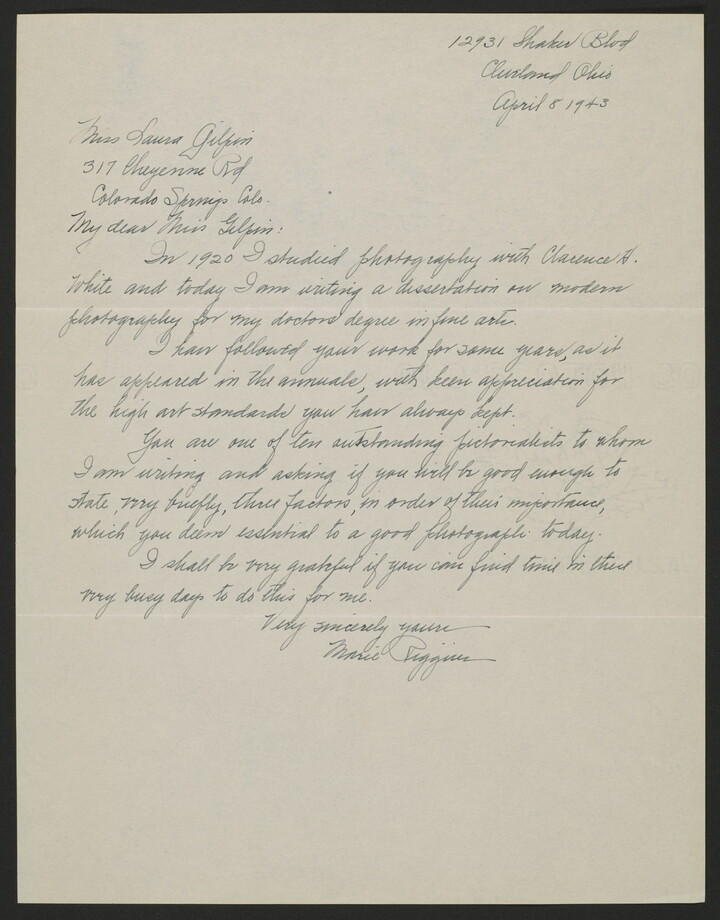 12931 Shaker Blvd
Cleveland Ohio
April 8 1943
Miss Laura Gilpin
317 Cheyenne Rd
Colorado Springs Colo.
My dear Miss Gilpin:
In 1920 I studied photography with Clarence H.
White and today I am writing a dissertation on modern
photography for my doctors degree in fine arts.
I have followed your work for some years, as it
has appeared in the annuals, with keen appreciation for
the high art standards you have always kept.
You are one of ten outstanding pictorialists to whom
I am writing and asking if you will be good enough to
state, very briefly, three factors, in order of their importance,
which you deem essential to a good photograph today.
I shall be very grateful if you can find time in these
very busy days to do this for me.
Very sincerely yours
Marie Riggins